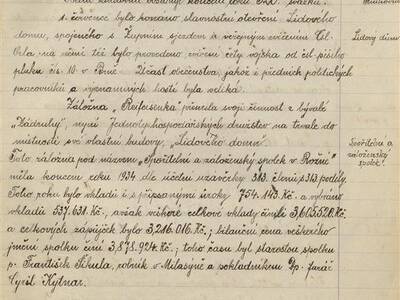 1. července bylo konáno slavnostní otevření Lidového
domu, spojeného s župním sjezdem a veřejným cvičením Čsl.
Orla, na němž též bylo provedeno cvičení čety vojska od čsl. pěšího
pluku čís. 10 v Brně. Účast občanstva, jakož i předních politických
pracovníků a významných hostí byla veliká.
Lidový dům
Záložna „Reifeisenka" přenesla svoji činnost z bývalé
„Zádruhy", nyní Jednoty hospodářských družstev na trvalo do
místnosti své vlastní budovy, „Lidového domu".
Tato záložna pod názvem „Spořitelní a záloženský spolek v Rožné"
měla koncem roku 1934 dle účetní uzávěrky 313 členů s 313 podíly.
Toho roku bylo vkladů i s připsanými úroky 754.143 Kč a vybráno
vkladů 537.631 Kč, avšak veškeré celkové vklady činily 3,605.528 Kč,
a celkových zápůjček bylo 3,216.016 Kč; bilanční cena veškerého
jmění spolku činí 3,878.924 Kč; toho času byl starostou spolku
p. František Sikula, rolník v Milasíně a pokladníkem Dp. farář
Cyril Kytnar.
Spořitelna a
záloženský
spolek.